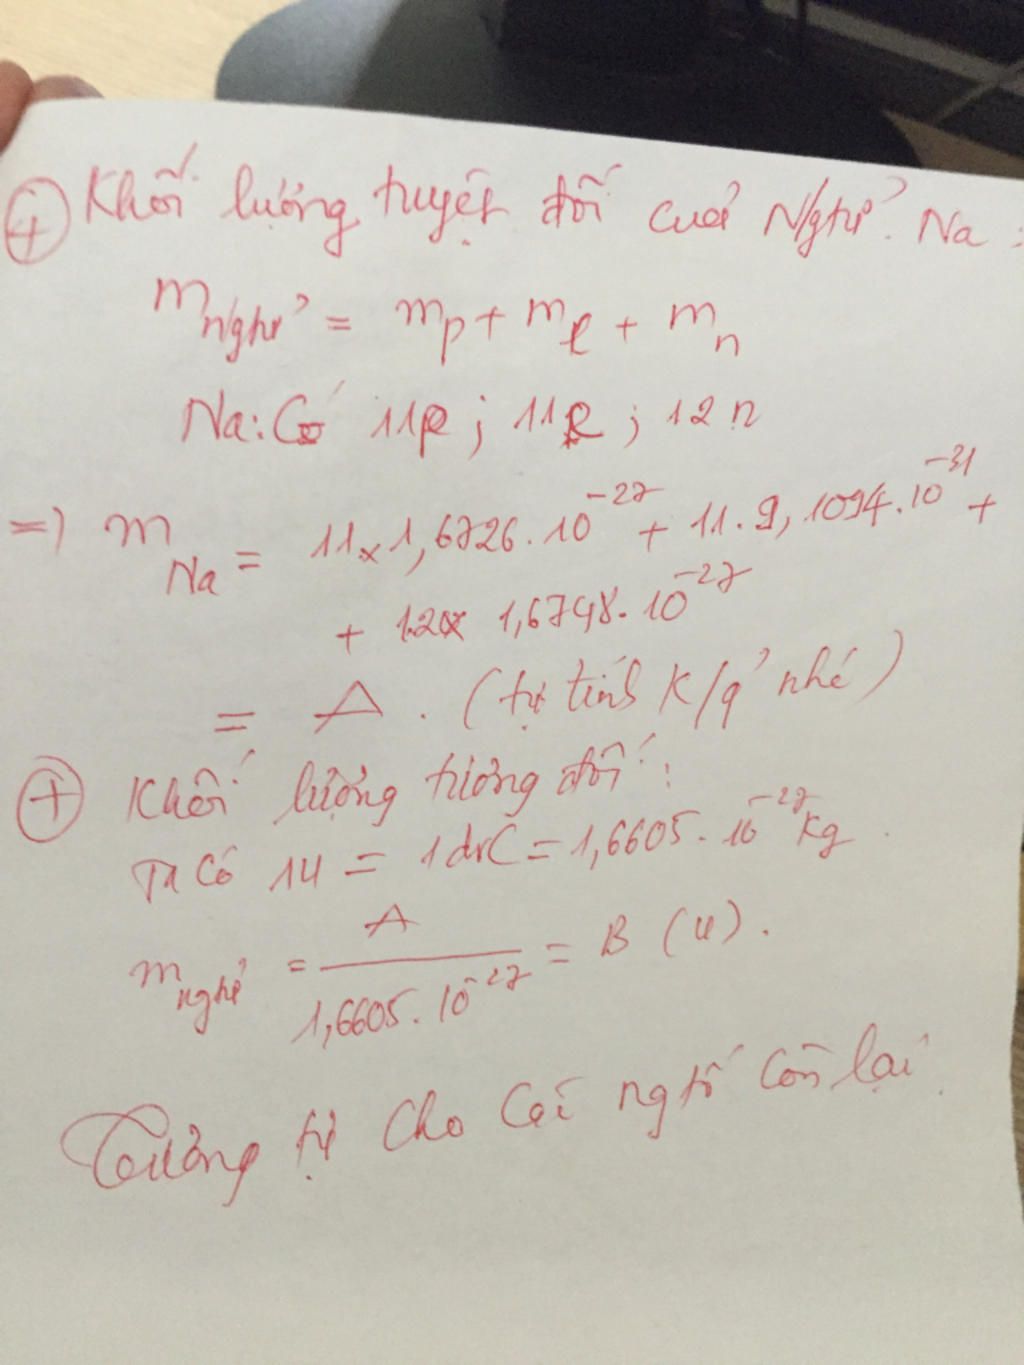 ⊕ Khối lượng tuyệt đối của Ngtử Na :
m ngtử = mp + me + mn
Na: Có 11p ; 11e ; 12n
=> m Na = 11 x 1,6726. 10^-27 + 11. 9,1094. 10^-31 +
+ 12 x 1,6748. 10^-27
= A . (tự tính k/q' nhé)
⊕ Khối lượng tương đối :
Ta có 1u = 1đvC = 1,6605. 10^-27 kg .
m ngtử = A / 1,6605. 10^-27 = B (u) .
Tương tự cho các ngtố còn lại.